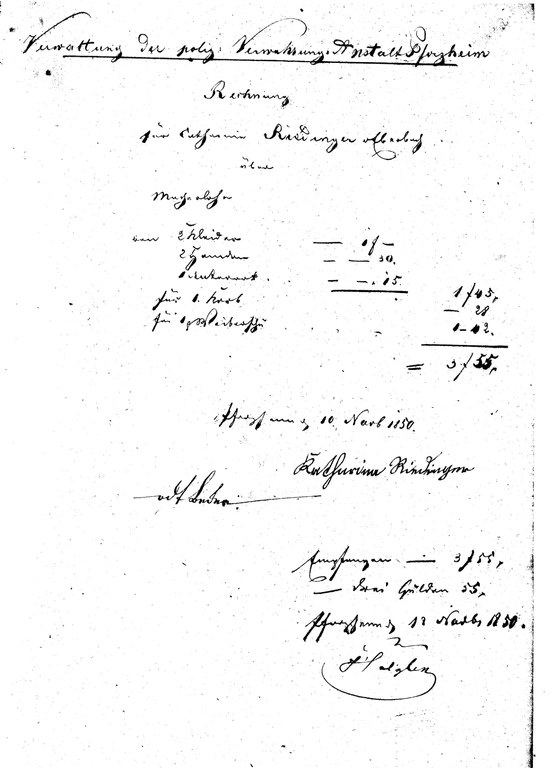 Verwaltung der poliz. Verwahrungs-Anstalt Pforzheim
Rechnung
für Catharina Riedinger
über
Macherlohn
von 2 Kleider — 1 f —
2 Hemden — — 30.
1 Unterrock. — — . 15.
1 f 45,
für 1. Korb — 28
für 1 p 1 – 42.
= 3 f 55,
Pforzheim d 10 Novb 1850.
Katharina Riedinger
vdt
Empfangen — 3 f 55,
— drei Gulden 55,
Pforzheim d 12 Novb 1850.